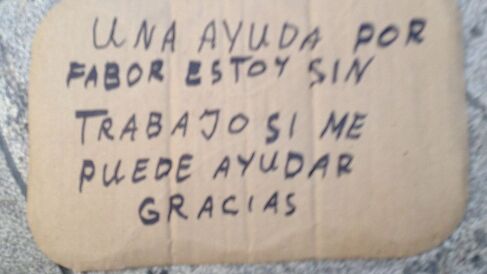 UNA AYUDA POR
FABOR ESTOY SIN
TRABAJO SI ME
PUEDE AYUDAR
GRACIAS